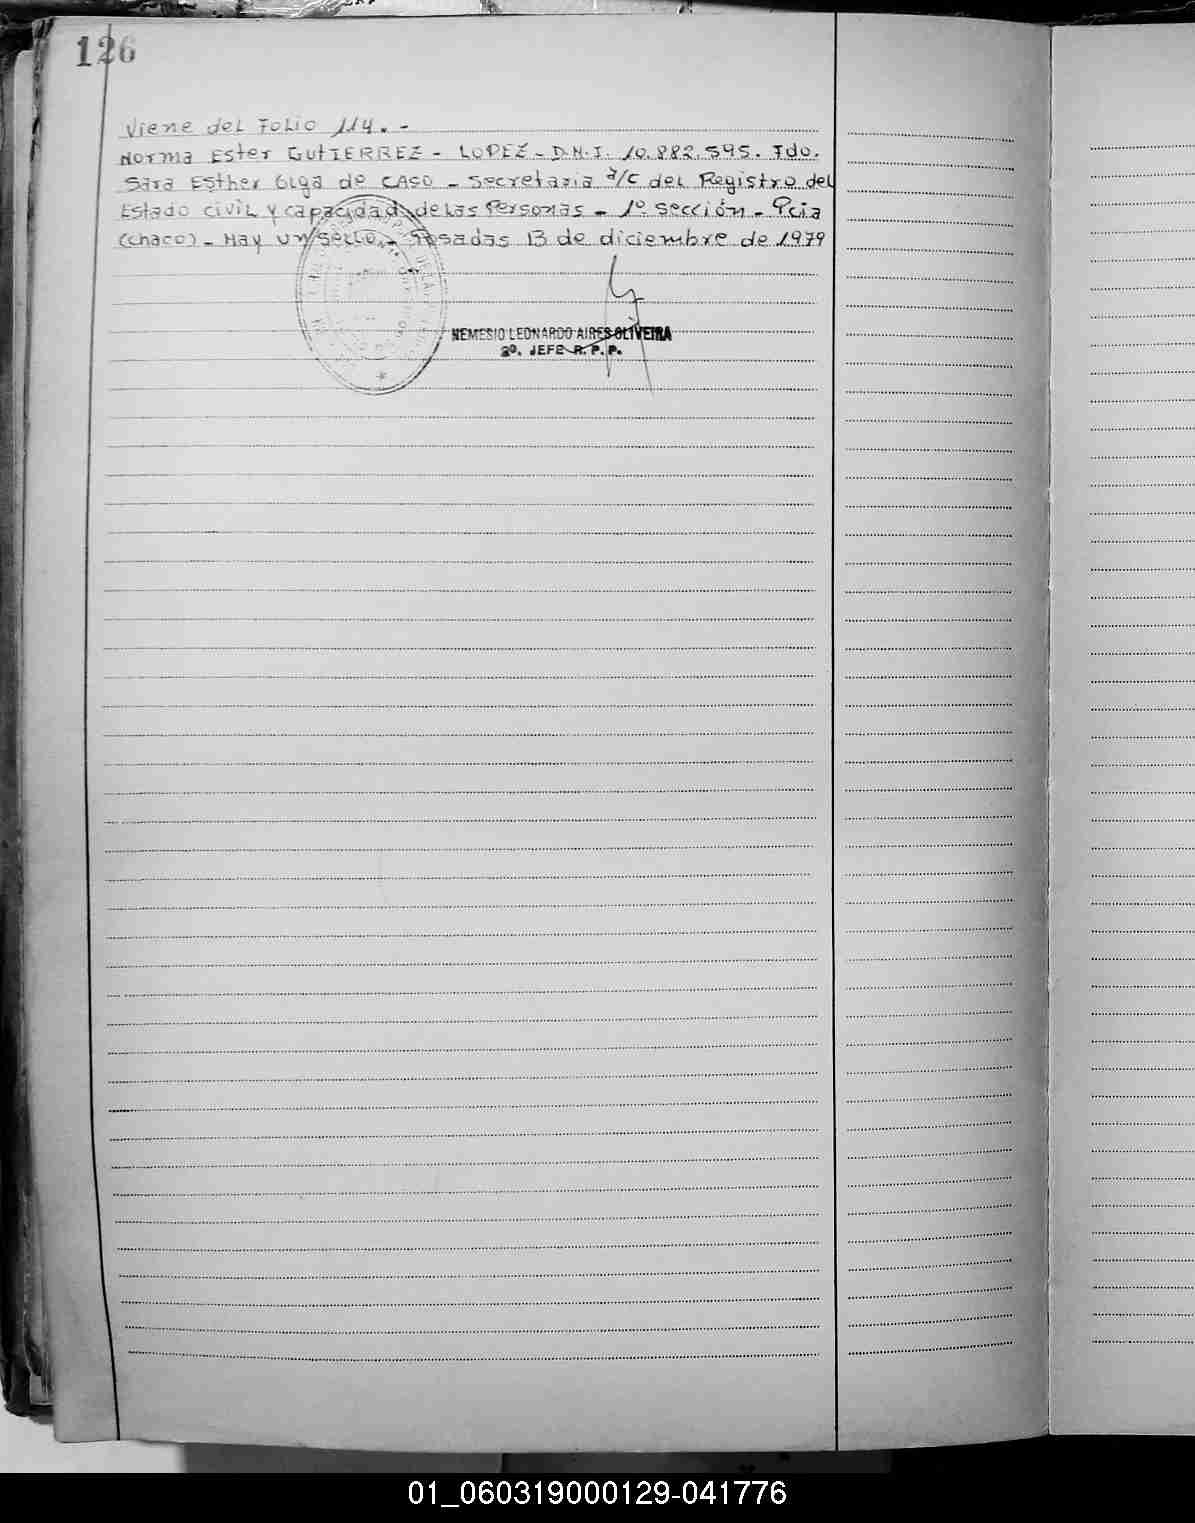 126
Viene del Folio 114. -
Norma Ester GUTIERREZ - LOPEZ - D.N.I. 10.882.595. Fdo.
Sara Esther Olga de CASO - Secretaria a/c del Registro del
Estado civil y capacidad de las Personas - 1º sección - Pcia
(chaco) - Hay un sello - Posadas 13 de diciembre de 1979
NEMESIO LEONARDO AIRES OLIVEIRA
2º. JEFE R. P. P.
01_060319000129-041776